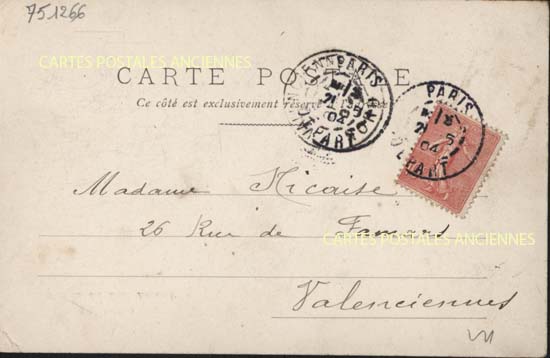 751266
CARTES POSTALES ANCIENNES
CARTE POSTALE
Ce côté est exclusivement réservé
PARIS
DEPART
04
PARIS
DEPART
04
Madame Nicaise
26 Rue de Famars
CARTES POSTALES ANCIENNES
Valenciennes